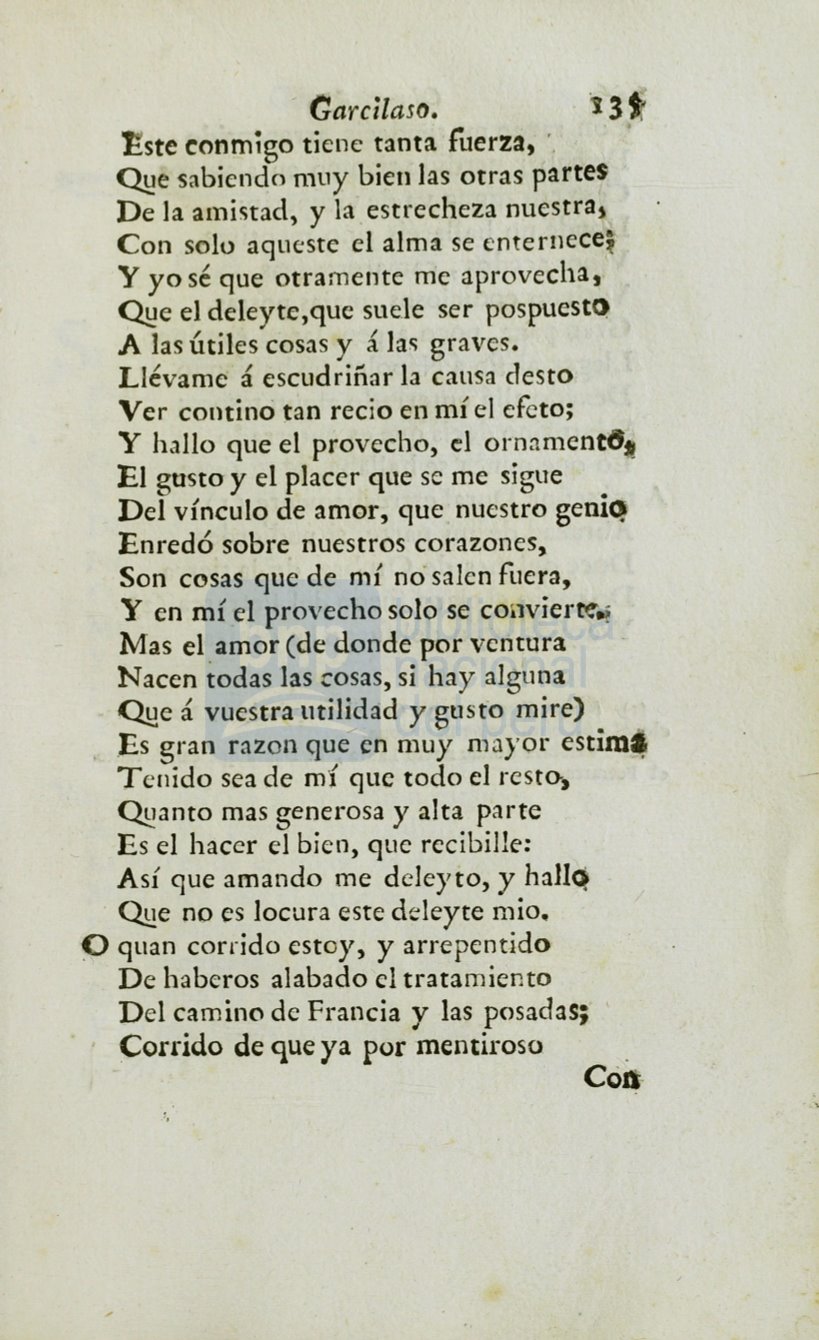 Garcilaso. 135
Este conmigo tiene tanta fuerza,
Que sabiendo muy bien las otras partes
De la amistad, y la estrecheza nuestra,
Con solo aqueste el alma se enternece;
Y yo sé que otramente me aprovecha,
Que el deleyte,que suele ser pospuesto
A las útiles cosas y á las graves.
Llévame á escudriñar la causa desto
Ver contino tan recio en mí el efeto;
Y hallo que el provecho, el ornamento,
El gusto y el placer que se me sigue
Del vínculo de amor, que nuestro genio
Enredó sobre nuestros corazones,
Son cosas que de mí no salen fuera,
Y en mí el provecho solo se convierte.
Mas el amor (de donde por ventura
Nacen todas las cosas, si hay alguna
Que á vuestra utilidad y gusto mire)
Es gran razon que en muy mayor estima
Tenido sea de mí que todo el resto,
Quanto mas generosa y alta parte
Es el hacer el bien, que recibille:
Así que amando me deleyto, y hallo
Que no es locura este deleyte mio.
O quan corrido estoy, y arrepentido
De haberos alabado el tratamiento
Del camino de Francia y las posadas;
Corrido de que ya por mentiroso
Con